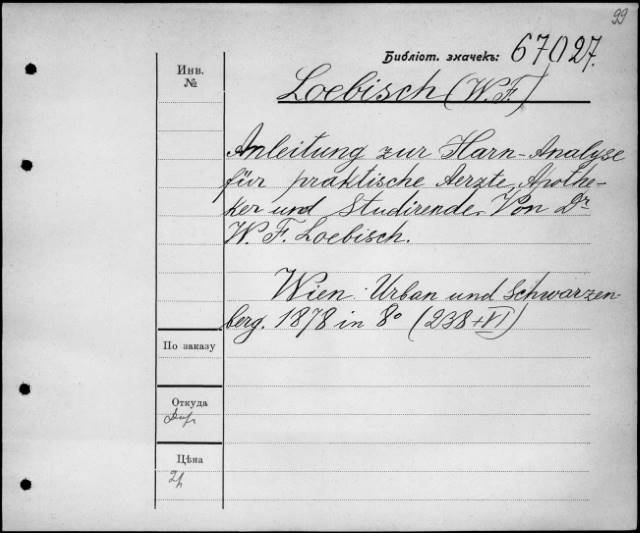 99
Библіот. значекъ: 67027.
Инв.
№
Loebisch (W. F.)
Anleitung zur Harn-Analyse
für praktische Aerzte, Apothe-
ker und Studirende. Von Dr
W. F. Loebisch.
Wien. Urban und Schwarzen-
berg. 1878 in 8° (238+VI)
По заказу
Откуда
Цѣна